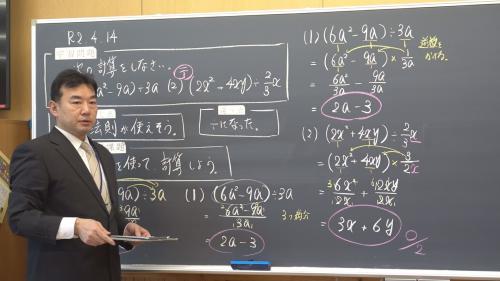 R2.4.14
学習問題
次の計算をしなさい。
(6a²-9a)÷3a (2) (2x²+4xy)÷2/3x
法則が使えそう。
になった。
を使って計算しよう。
-9a)÷3a
9a
3a
(1) (6a²-9a)÷3a
= 6a²-9a / 3a
= 2a-3
3つ約分
(1) (6a²-9a)÷3a
逆数を
かける
= (6a²-9a)×1/3a
= 6a²/3a - 9a/3a
= 2a-3
(2) (2x²+4xy)÷2/3x
= (2x²+4xy)×3/2x
= 6x²/2x + 12xy/2x
= 3x+6y
0/2